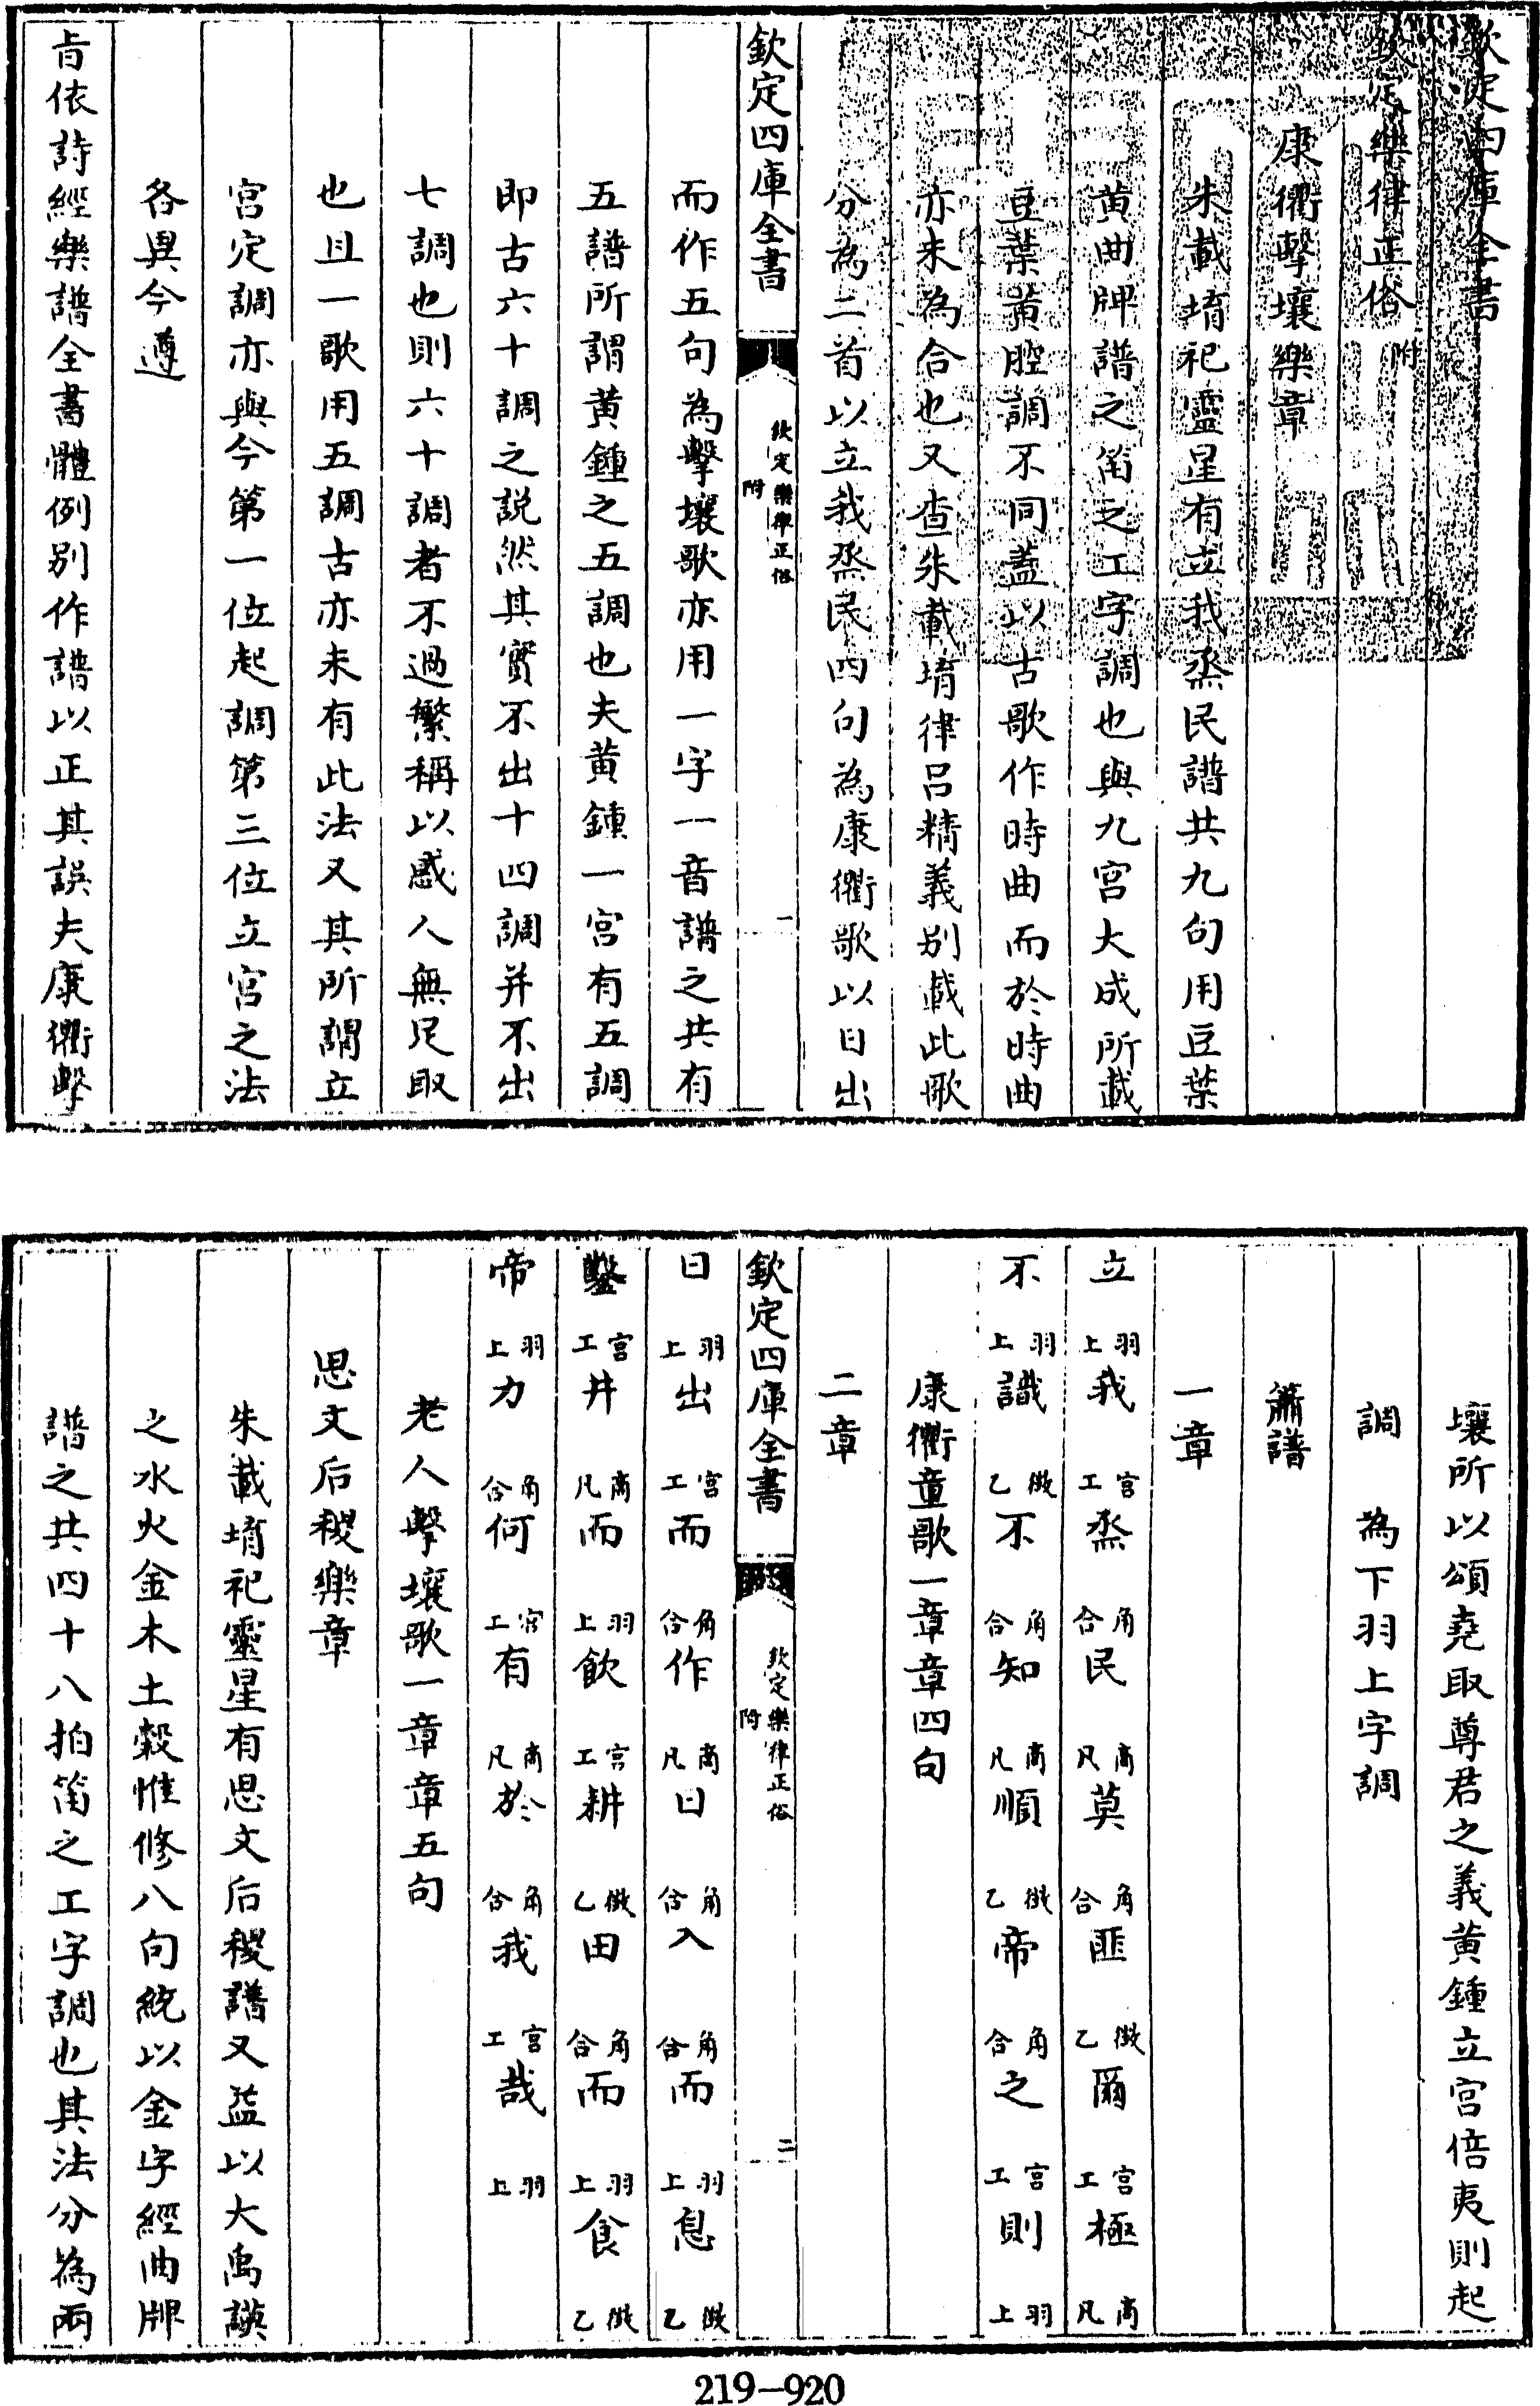 欽定四庫全書
欽定樂律正俗附
康衢擊壤樂章
朱載堉祀靈星有立我烝民譜共九句用豆葉
黄曲牌譜之笛之工字調也與九宫大成所載
豆葉黄腔調不同蓋以古歌作時曲而於時曲
亦未為合也又查朱載堉律吕精義别載此歌
分為二首以立我烝民四句為康衢歌以日出
欽定四庫全書
欽定樂律正俗
附
一
而作五句為擊壤歌亦用一字一音譜之共有
五譜所謂黄鍾之五調也夫黄鍾一宫有五調
即古六十調之説然其實不出十四調并不出
七調也則六十調者不過繁稱以惑人無足取
也且一歌用五調古亦未有此法又其所謂立
宫定調亦與今第一位起調第三位立宫之法
各異今遵
旨依詩經樂譜全書體例别作譜以正其誤夫康衢擊
壤所以頌堯取尊君之義黄鍾立宫倍夷則起
調　為下羽上字調
簫譜
一章
立羽上我宫工烝角合民商凡莫角合匪徴乙爾宫工極商凡
不羽上識徴乙不角合知商凡順徴乙帝角合之宫工則羽上
康衢童歌一章章四句
二章
欽定四庫全書
欽定樂律正俗
附
二
日羽上出宫工而角合作商凡日角合入角合而羽上息徴乙
鑿宫工井商凡而羽上飲宫工耕徴乙田角合而羽上食徴乙
帝羽上力角合何宫工有商凡於角合我宫工哉羽上
老人擊壤歌一章章五句
思文后稷樂章
朱載堉祀靈星有思文后稷譜又益以大禹謨
之水火金木土穀惟修八句統以金字經曲牌
譜之共四十八拍笛之工字調也其法分為兩
219-920